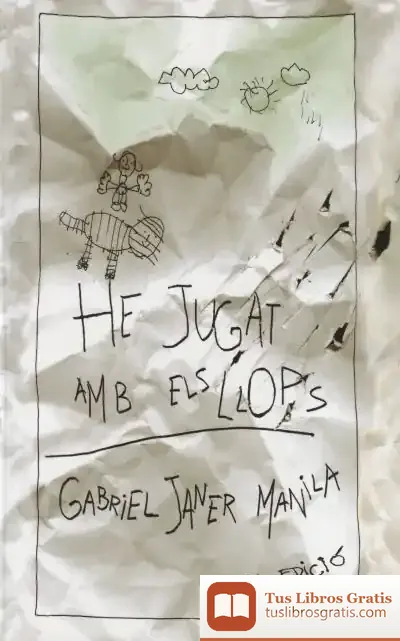 HE JUGAT
AMB ELS LLOPS
GABRIEL JANER MANILA
EDICIÓ
Tus Libros Gratis
tuslibrosgratis.com